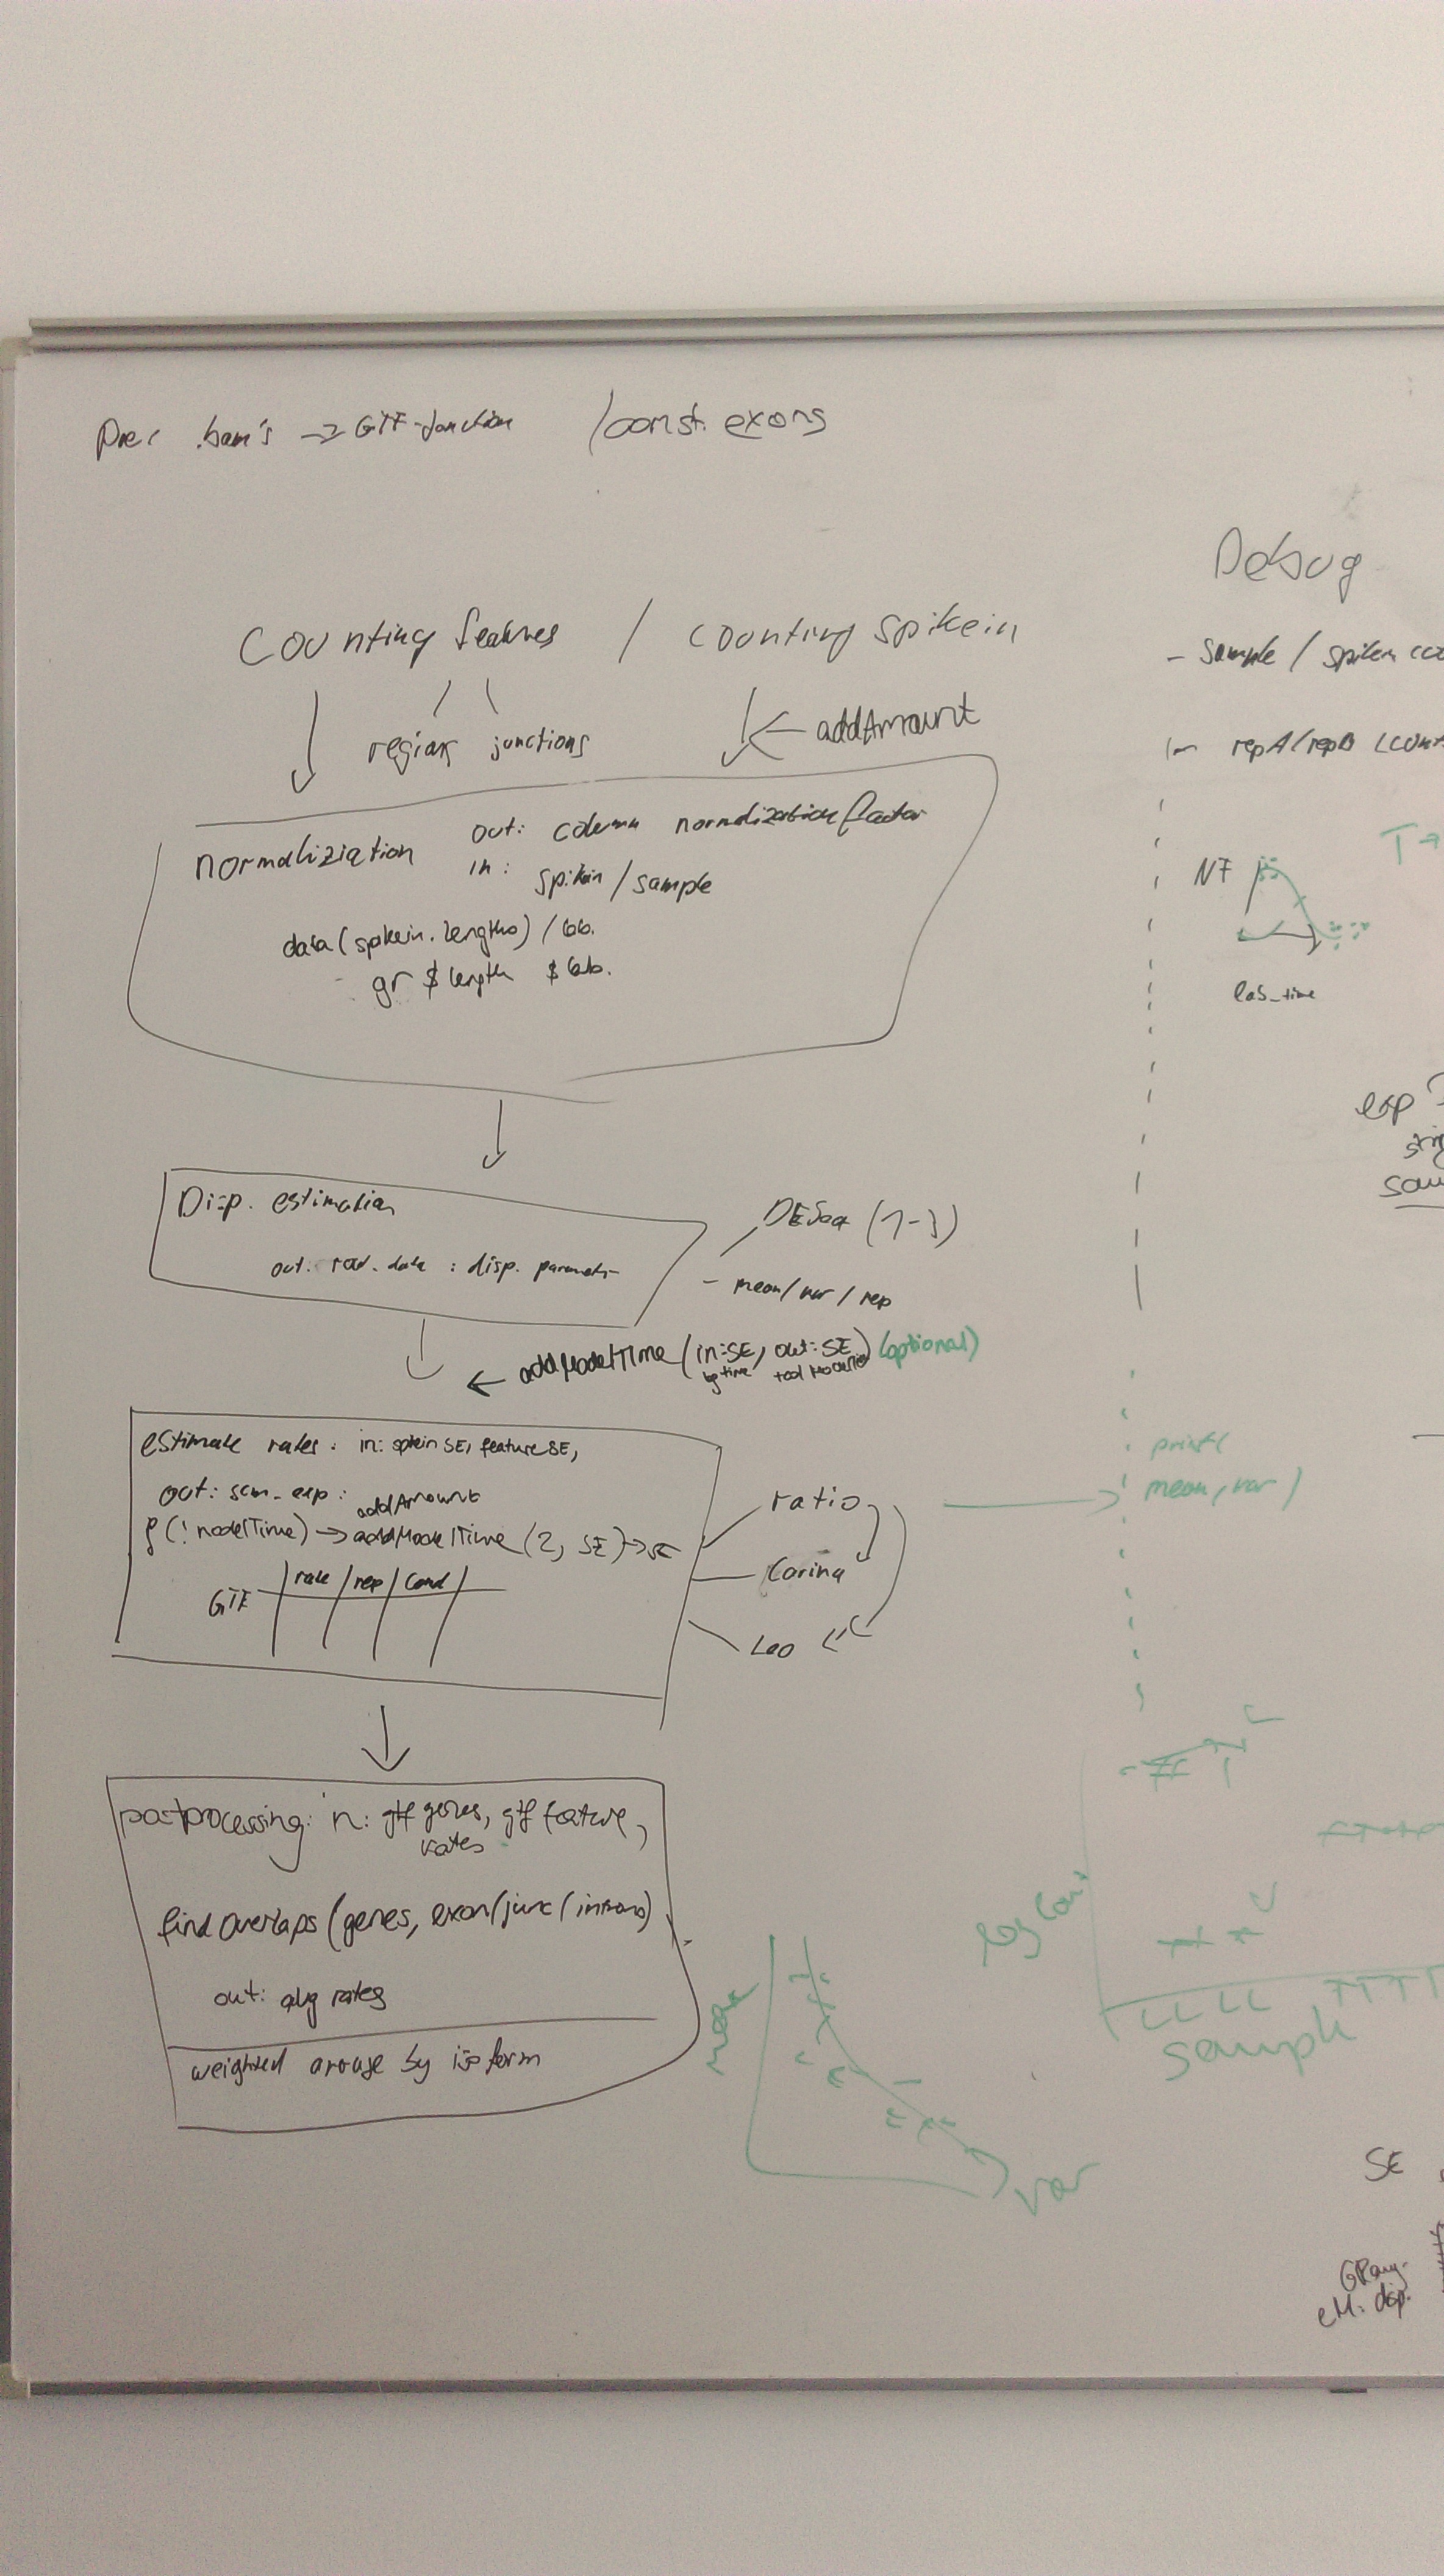 .bam's → GTF-Junction /const. exons
Counting features / counting spikein
regions junctions
← addAmount
normaliziation
out: column normalization factor
in: spikein / sample
data(spikein.lengths) / lab.
gr $ length $ lab.
Disp. estimation
out: row.data : disp. parameter
DESeq (1-3)
- mean/var/rep
← addModelTime (in:SE, out:SE) (optional)
estimate rates: in: spikein SE, feature SE,
out: sum_exp:
addAmount
(! modelTime) → addModelTime (2, SE) → SE
rate / rep / Cond
GTF
ratio
Carina
Leo
postprocessing: in: gtf genes, gtf feature,
rates
findOverlaps (genes, exon/junc/introns)
out: avg rates
weighted average by isoform
Debug
- sample / spikein
- repA/repB
NF
lab_time
T →
exp ?
print(
mean, var )
mean
var
log
LL LL TTTT
sample
SE
disp.